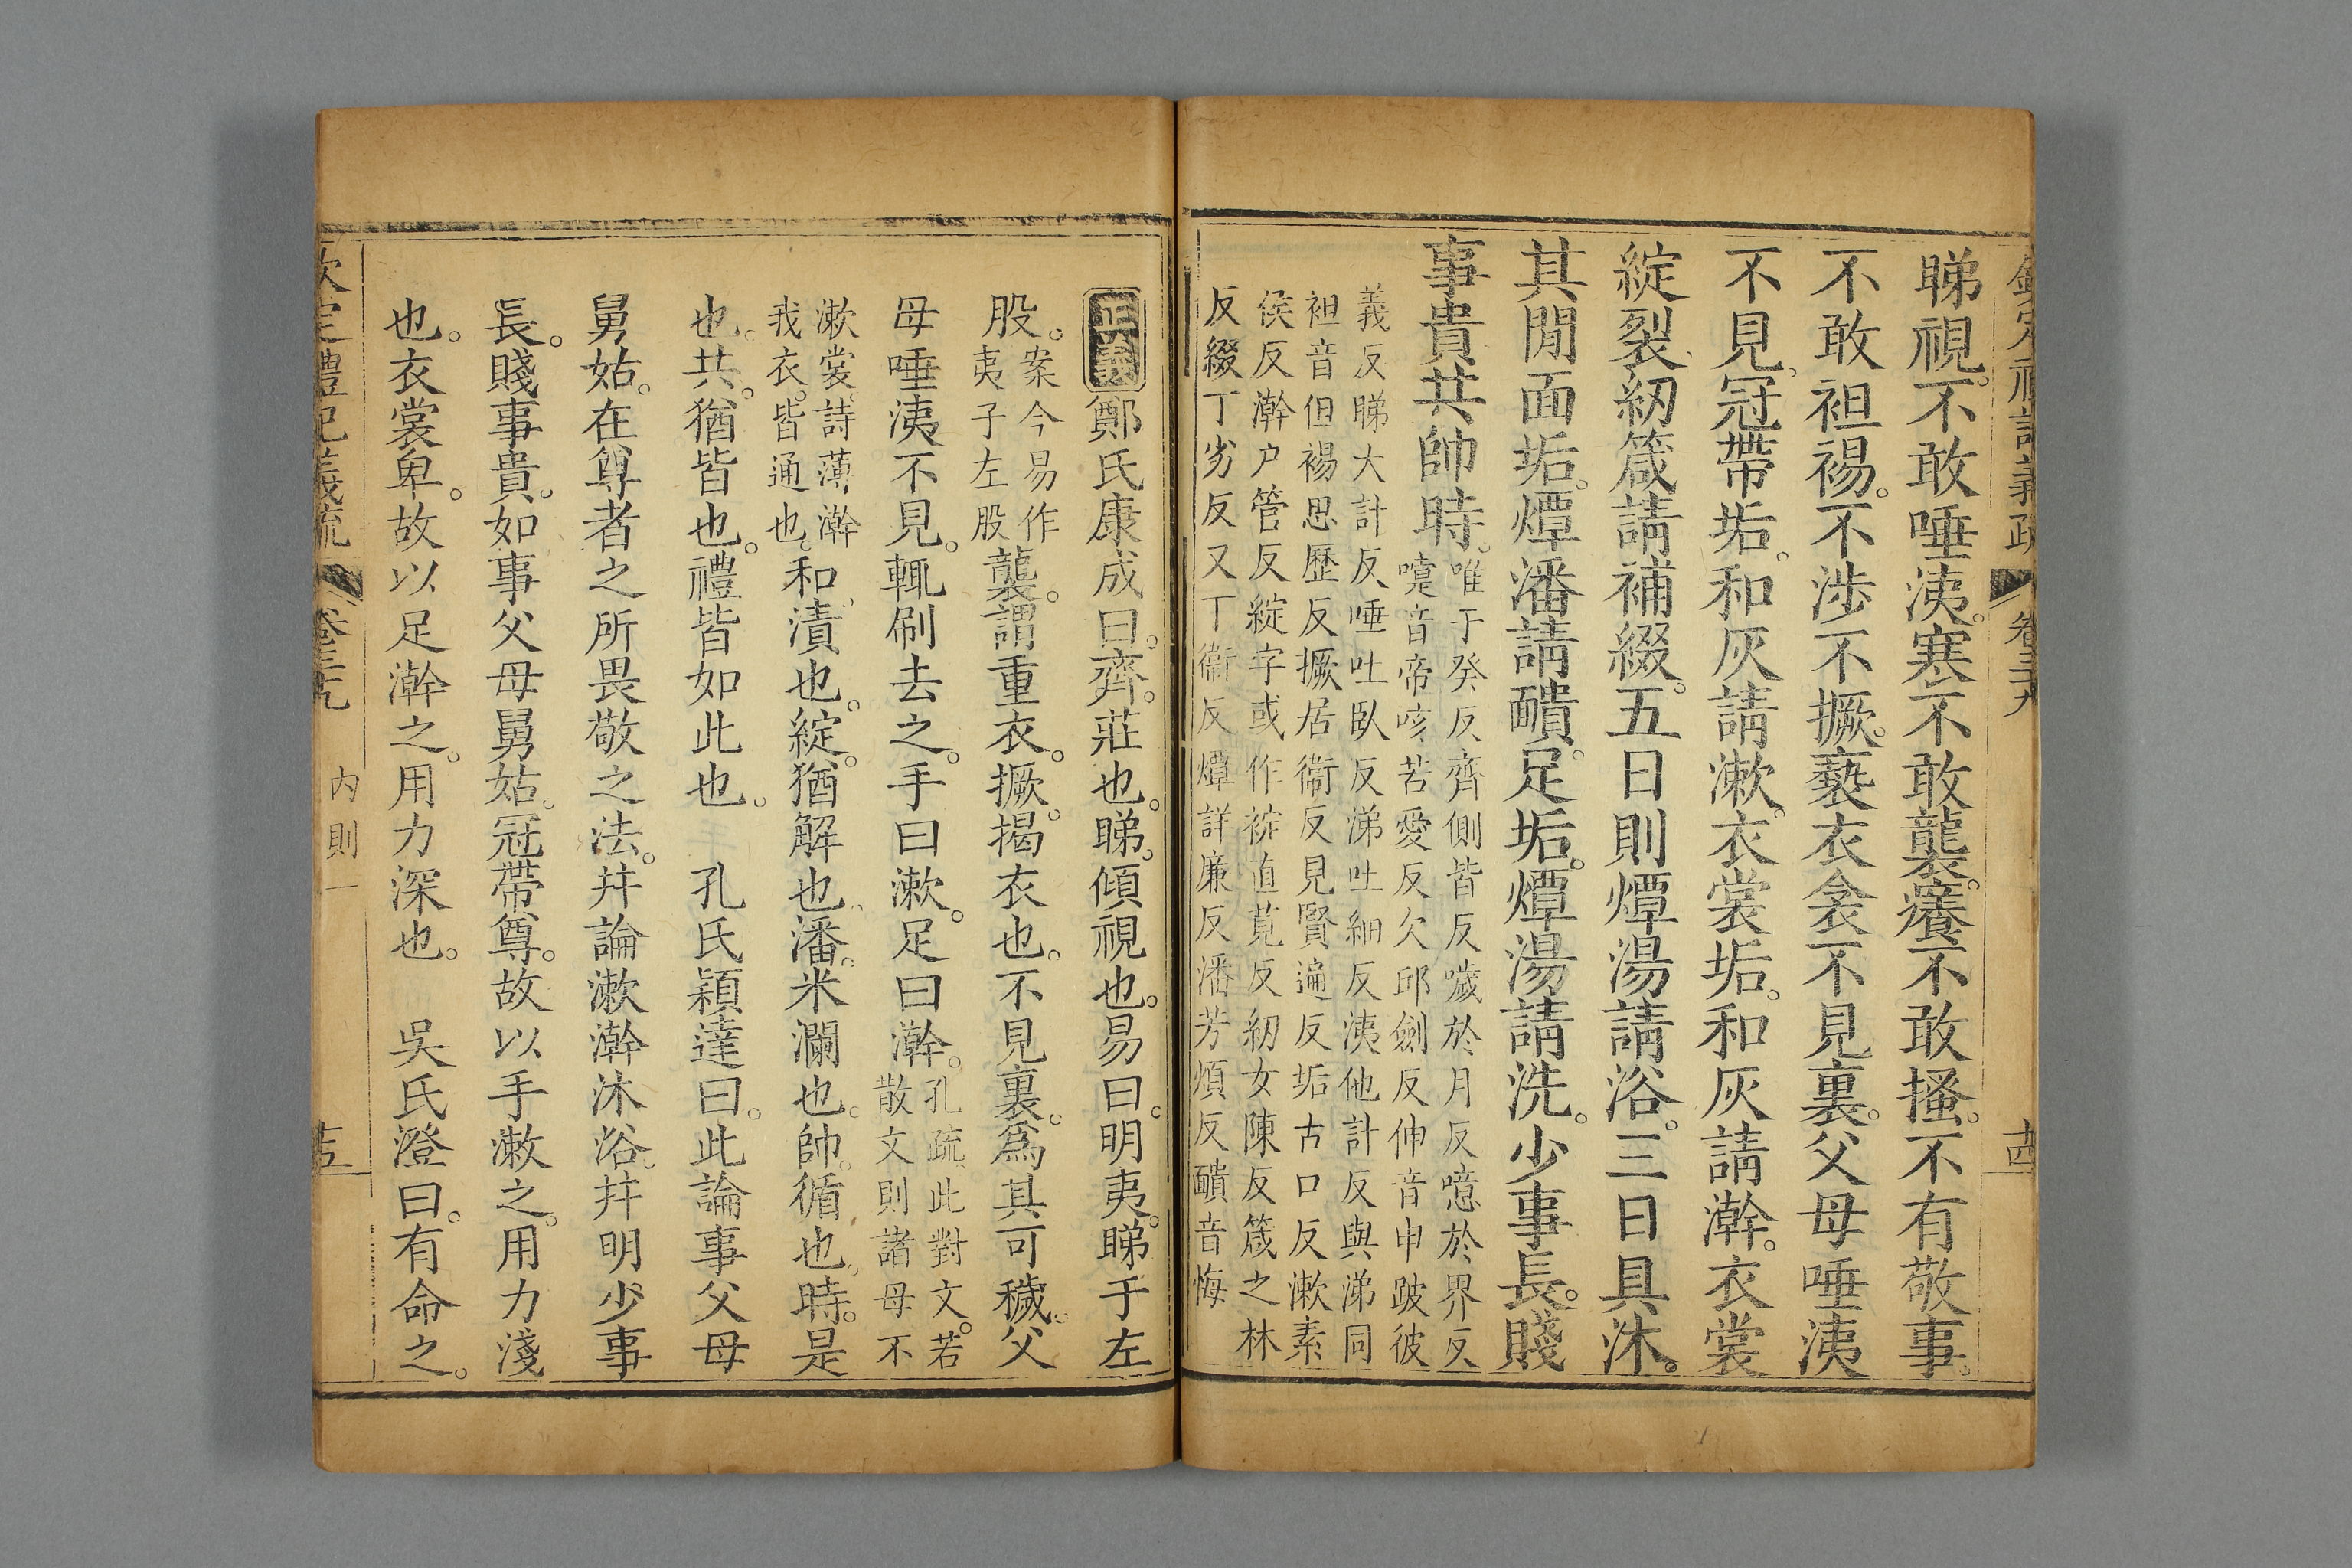 欽定禮記義疏 卷三十九 十四
睇視。不敢唾洟。寒不敢襲。癢不敢搔。不有敬事。
不敢袒裼。不涉不撅。褻衣衾不見裏。父母唾洟
不見、冠帶垢。和灰請漱。衣裳垢。和灰請澣。衣裳
綻裂、紉箴請補綴。五日則燂湯請浴。三日具沐。
其閒面垢。燂潘請靧。足垢。燂湯請洗。少事長。賤
事貴共帥時。
唯于癸反齊側皆反噦於月反噫於界反
嚏音帝咳苦愛反欠邱劍反伸音申跛彼
義反睇大計反唾吐臥反涕吐細反洟他計反與涕同
袒音但裼思歷反撅居衞反見賢遍反垢古口反漱素
侯反澣户管反綻字或作䘺直莧反紉女陳反箴之林
反綴丁劣反又丁衞反燂詳廉反潘芳煩反靧音悔
正義鄭氏康成曰。齊。莊也。睇。傾視也。易曰。明夷。睇于左
股。案今易作夷子左股襲。謂重衣。撅。揭衣也。不見裏。爲其可穢。父
母唾洟不見。輒刷去之。手曰漱。足曰澣。孔疏、此對文。若散文則諸母不
漱裳、詩薄澣我衣。皆通也。和、漬也。綻。猶解也、潘。米瀾也。帥。循也、時。是
也。共。猶皆也。禮皆如此也。 孔氏穎達曰。此論事父母
舅姑。在尊者之所畏敬之法。幷論漱澣沐浴。幷明少事
長。賤事貴。如事父母舅姑。冠帶尊。故以手漱之。用力淺
也。衣裳卑。故以足澣之。用力深也。 吳氏澄曰。有命之。
欽定禮記義疏 卷三十九 內則一 十五